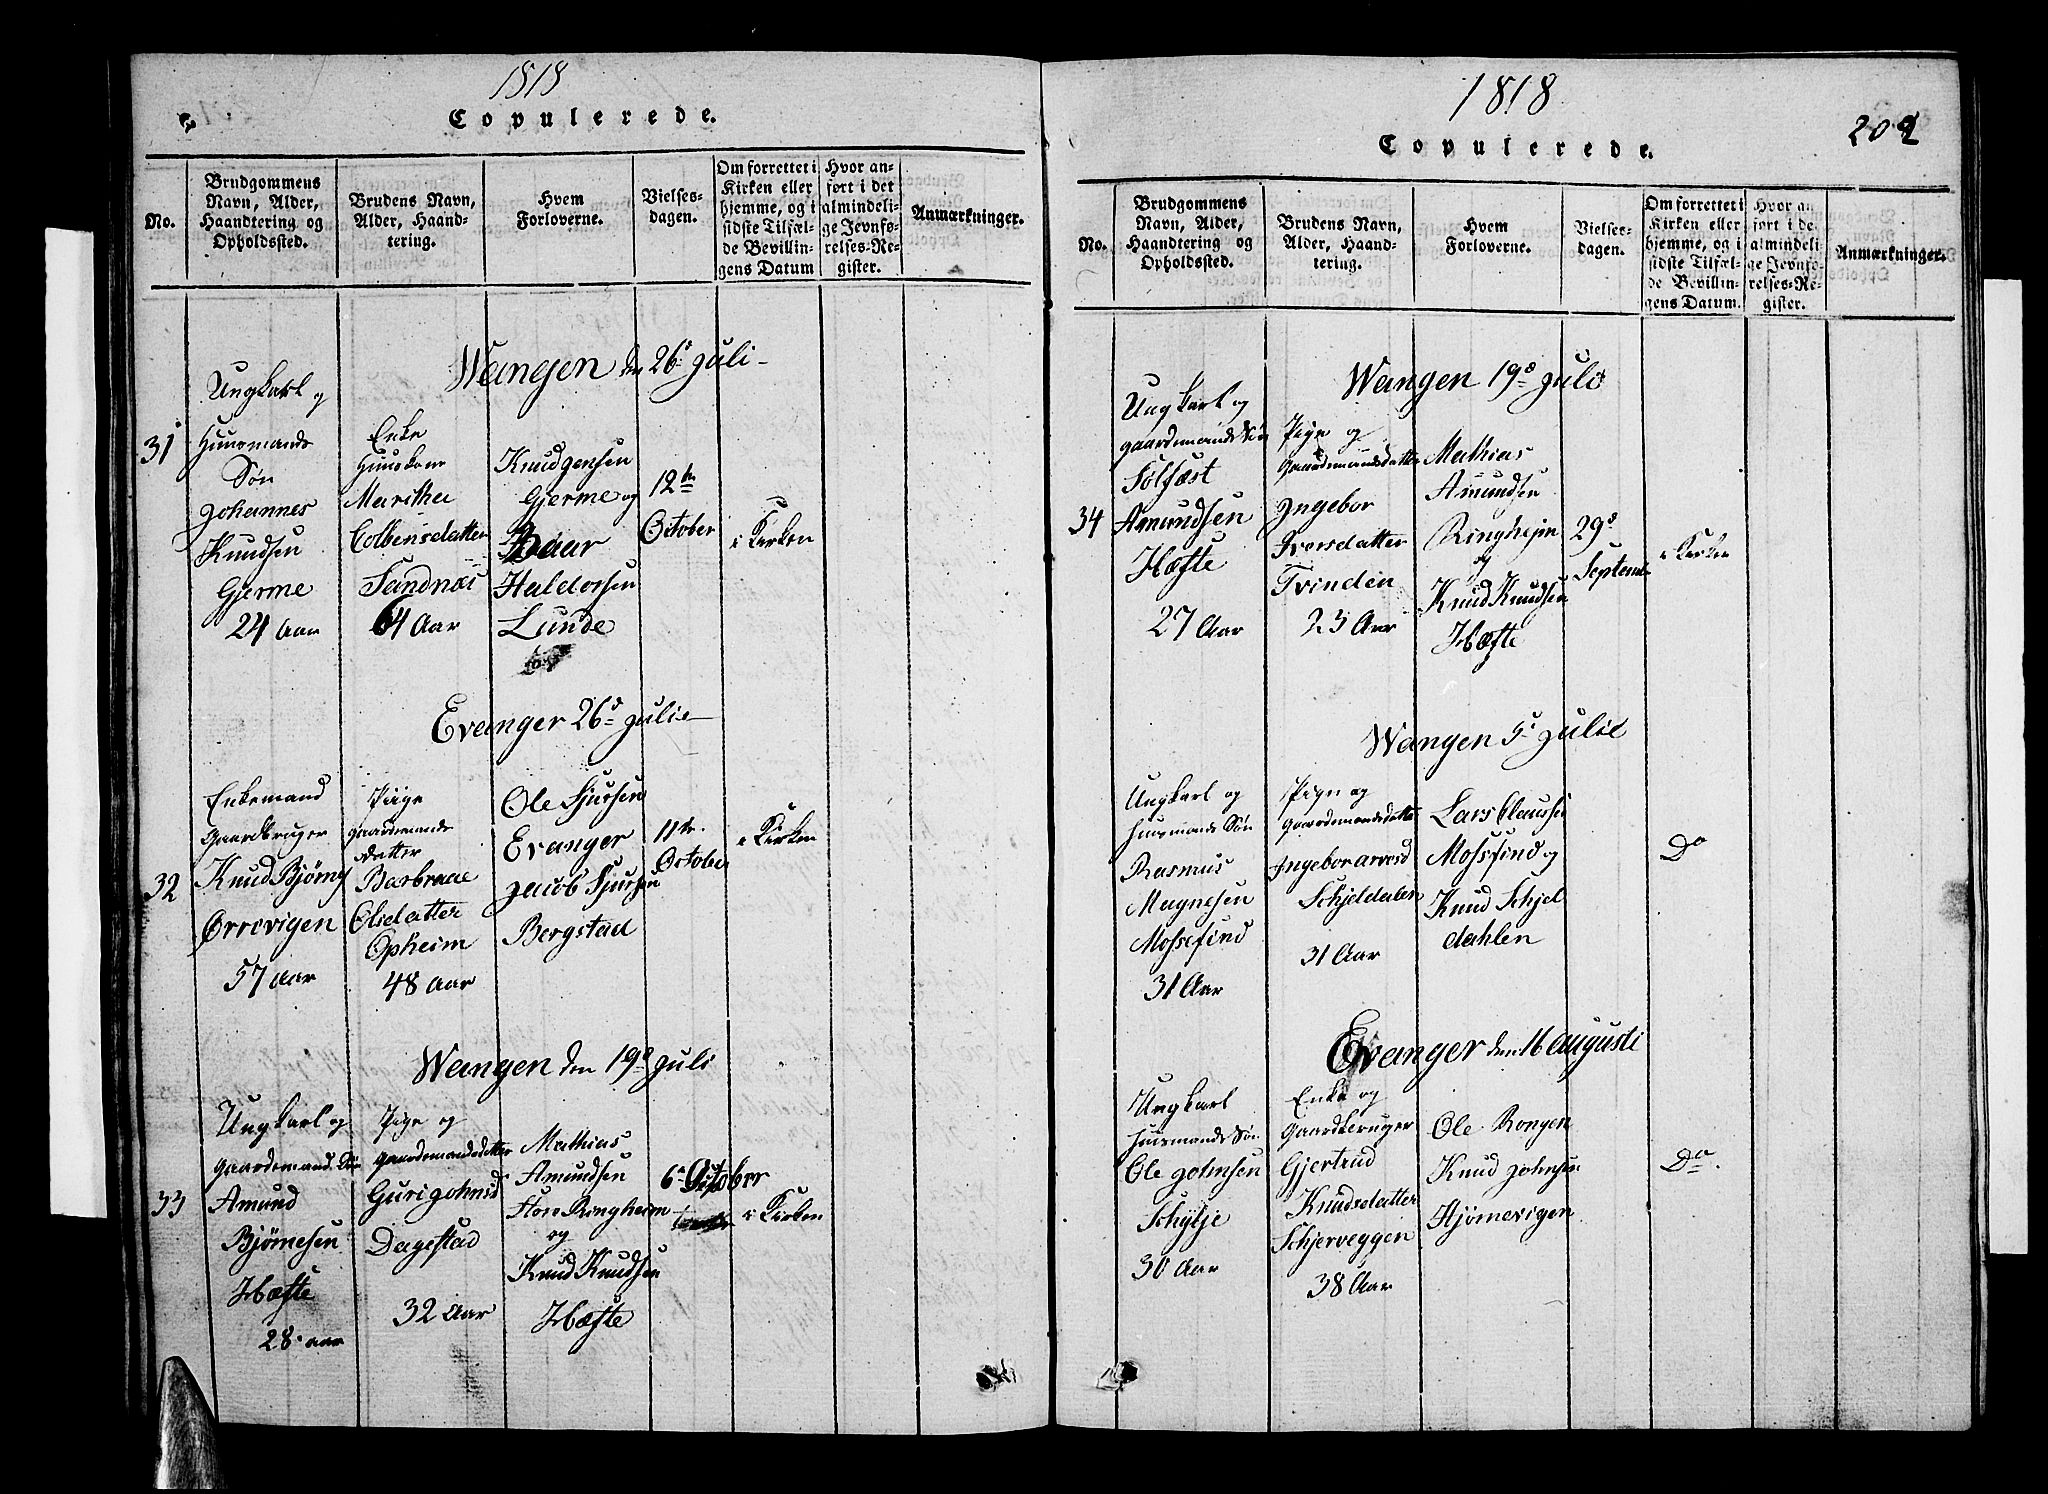 1818
Copulerede.
No.
Brudgommens
Navn, Alder,
Haandtering og
Opholdssted.
Brudens Navn,
Alder, Haand-
tering.
Hvem
Forloverne.
Vielses-
dagen.
Om forrettet i
Kirken eller
hjemme, og i
sidste Tilfæl-
de Bevillin-
gens Datum
Hvor an-
ført i det
almindeli-
ge Jevnfø-
relses-Re-
gister.
Anmærkninger.
Wangen den 26de Juli
31
Ungkarl og
Huusmands
Søn
Johannes
Knudsen
Gjerme
24 Aar
Enke
Huuskone
Maritha
Colbensdatter
Sandnæs
64 Aar
Knud Jensen
Gjerme og
Baar
Haldorsen
Lunde
12te
October
i Kirken
Evanger 26d Julie
32
Enkemand
Gaardbruger
Knud Bjørns
Orrevigen
57 Aar
Piige
Gaardmands
datter
Barbraae
Olsdatter
Opheim
48 Aar
Ole Sjursen
Evanger
Jacob Sjursen
Bergstad
11te
October
i Kirken
Wangen den 19d Juli
33
Ungkarl og
Gaardemands Søn
Amund
Bjørnesen
Hæfte
28 aar
Pige og
Gaardemandsdatter
Guri Johnsd
Dagestad
32 Aar
Mathias
Amundsen
Ringheim
og
Knud Knudsen
Hæfte
6 October
i Kirken
1818
202
Copulerede.
No.
Brudgommens
Navn, Alder,
Haandtering og
Opholdssted.
Brudens Navn,
Alder, Haand-
tering.
Hvem
Forloverne.
Vielses-
dagen.
Om forrettet i
Kirken eller
hjemme, og i
sidste Tilfæl-
de Bevillin-
gens Datum.
Hvor an
ført i de
almindeli
ge Jevnfø-
relses-Re-
gister.
Anmærkninger.
Wangen 19d Juli
34
Ungkarl og
gaardemands Søn
Solfæst
Amundsen
Hæfte
27 Aar
Pige og
Gaardemandsdatter
Ingebor
Iversdatter
Tvinden
23 Aar
Mathias
Amundsen
Ringhejm
og
Knud Knudsen
Hæfte
29d
Septemb
i Kirken
Wangen 5d Julie
Ungkarl og
Huusmands Søn
Rasmus
Magnesen
Mossefind
31 Aar
Pige og
Gaardemandsdatter
Ingebor Arvesd
Schjeldalen
31 Aar
Lars Claussen
Mossfind og
Knud Schjel
dahlen
Do
Evanger den 16 Augusti
Ungkarl
Huusmands Søn
Ole Johnsen
Schytje
30 Aar
Enke og
Gaardbruger
Gjertrud
Knudsdatter
Schjerveggen
38 Aar
Ole Rongen
Knud Johnsen
Hjørnevigen
Do.